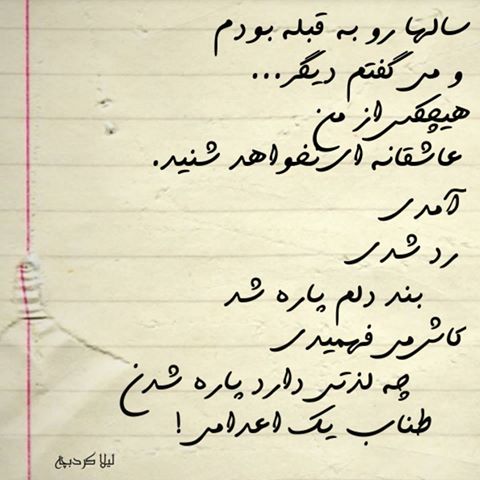 سالها رو به قبله بودم
و می گفتم دیگر...
هیچکس از من
عاشقانه ای نخواهد شنید.
آمدی
رد شدی
بند دلم پاره شد
کاش می فهمیدی
چه لذتی دارد پاره شدن
طناب یک اعدامی!
لیلا کردبچه